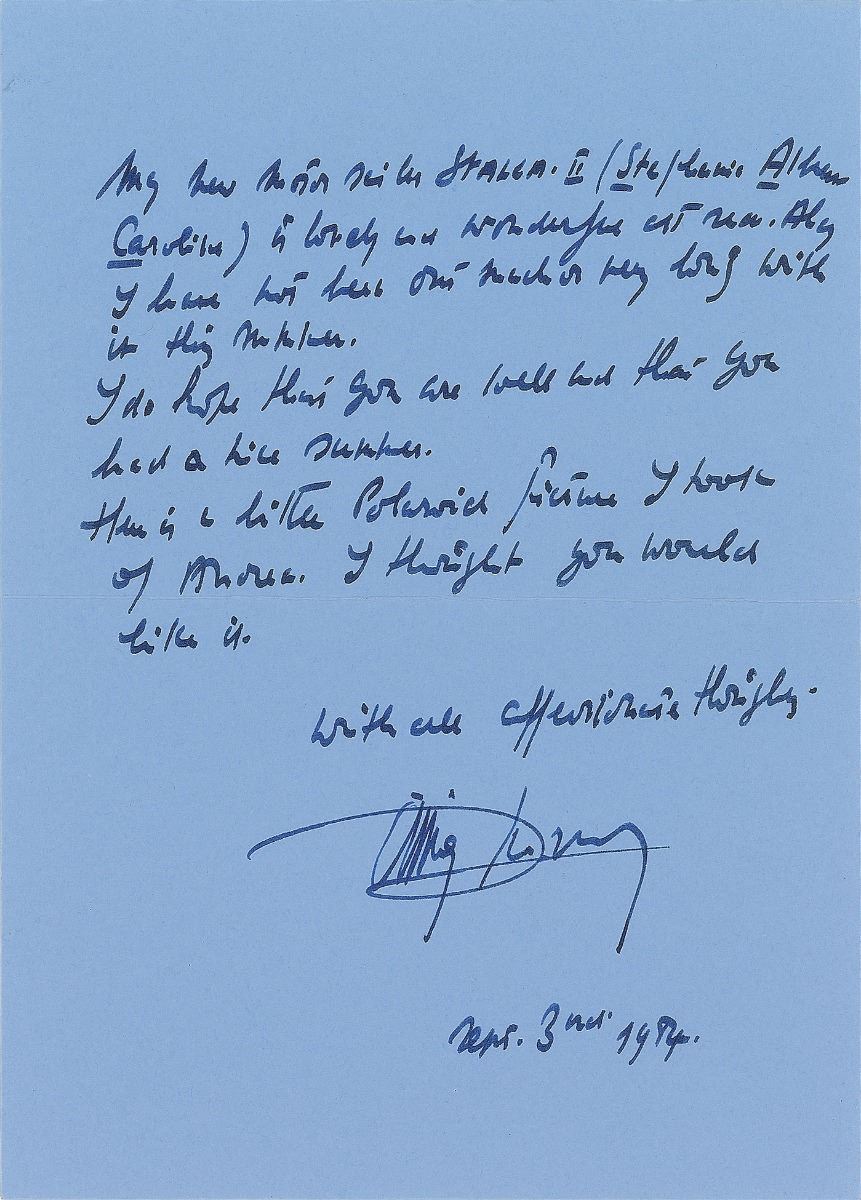 My new motor sailer STALCA. II (Stephanie Albert
Caroline) is lovely and wonderful at sea. Alas
I have not been out much or very long with
it this summer.
I do hope that you are well and that you
had a nice summer.
Here is a little Polaroid picture I took
of Andrea. I thought you would
like it.
With all affectionate thoughts.
Sept. 3rd. 1984.